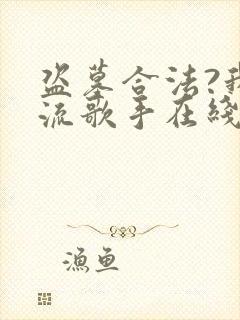 盗墓合法?我
流歌手在线
漁鱼